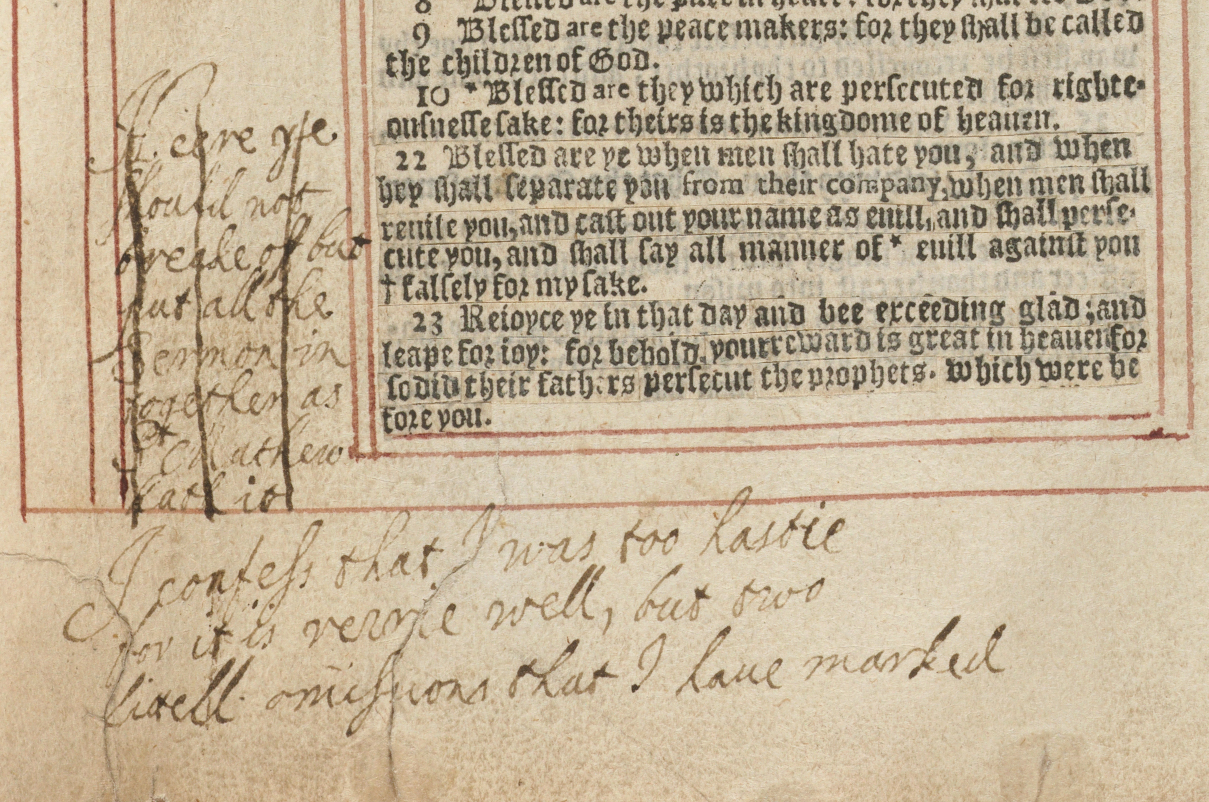 9 Blessed are the peace makers: for they shall be called
the children of God.
10 * Blessed are they which are persecuted for righte-
ousnesse sake: for theirs is the kingdome of heauen.
22 Blessed are ye when men shall hate you, and when
hey shall separate you from their company, when men shall
reuile you, and cast out your name as euill, and shall perse-
cute you, and shall say all manner of * euill against you
† falsely for my sake.
23 Reioyce ye in that day and bee exceeding glad; and
leape for ioy: for behold, your reward is great in heauen for
so did their fathers persecut the prophets. which were be
fore you.
Heere yſe
should not
breake of but
put all the
Sermon in
together as
St Mathew
hath it
I confess that I was too hastie
for it is verrie well, but two
litell omissions that I haue marked